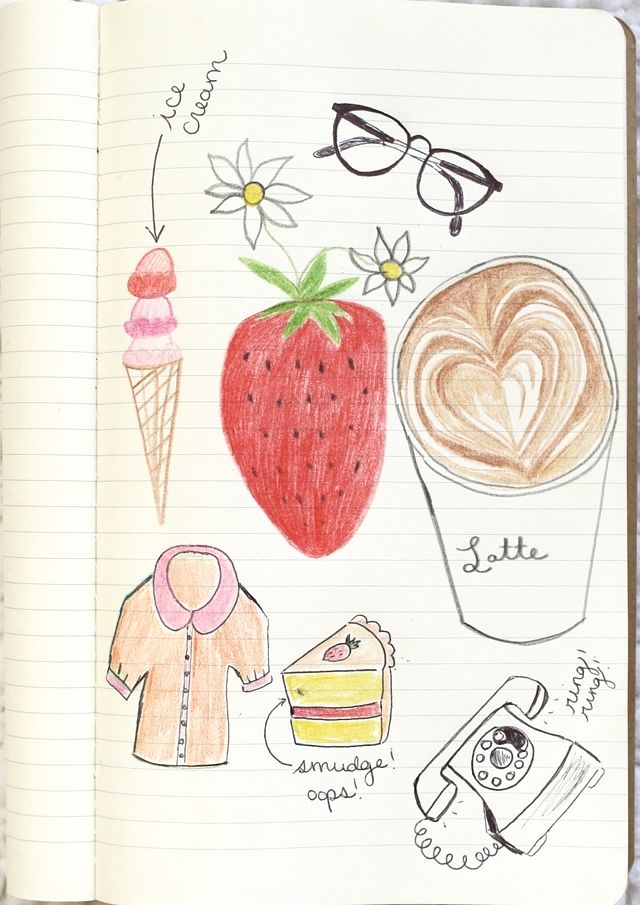 ice
cream
Latte
ring!
ring!
smudge!
oops!